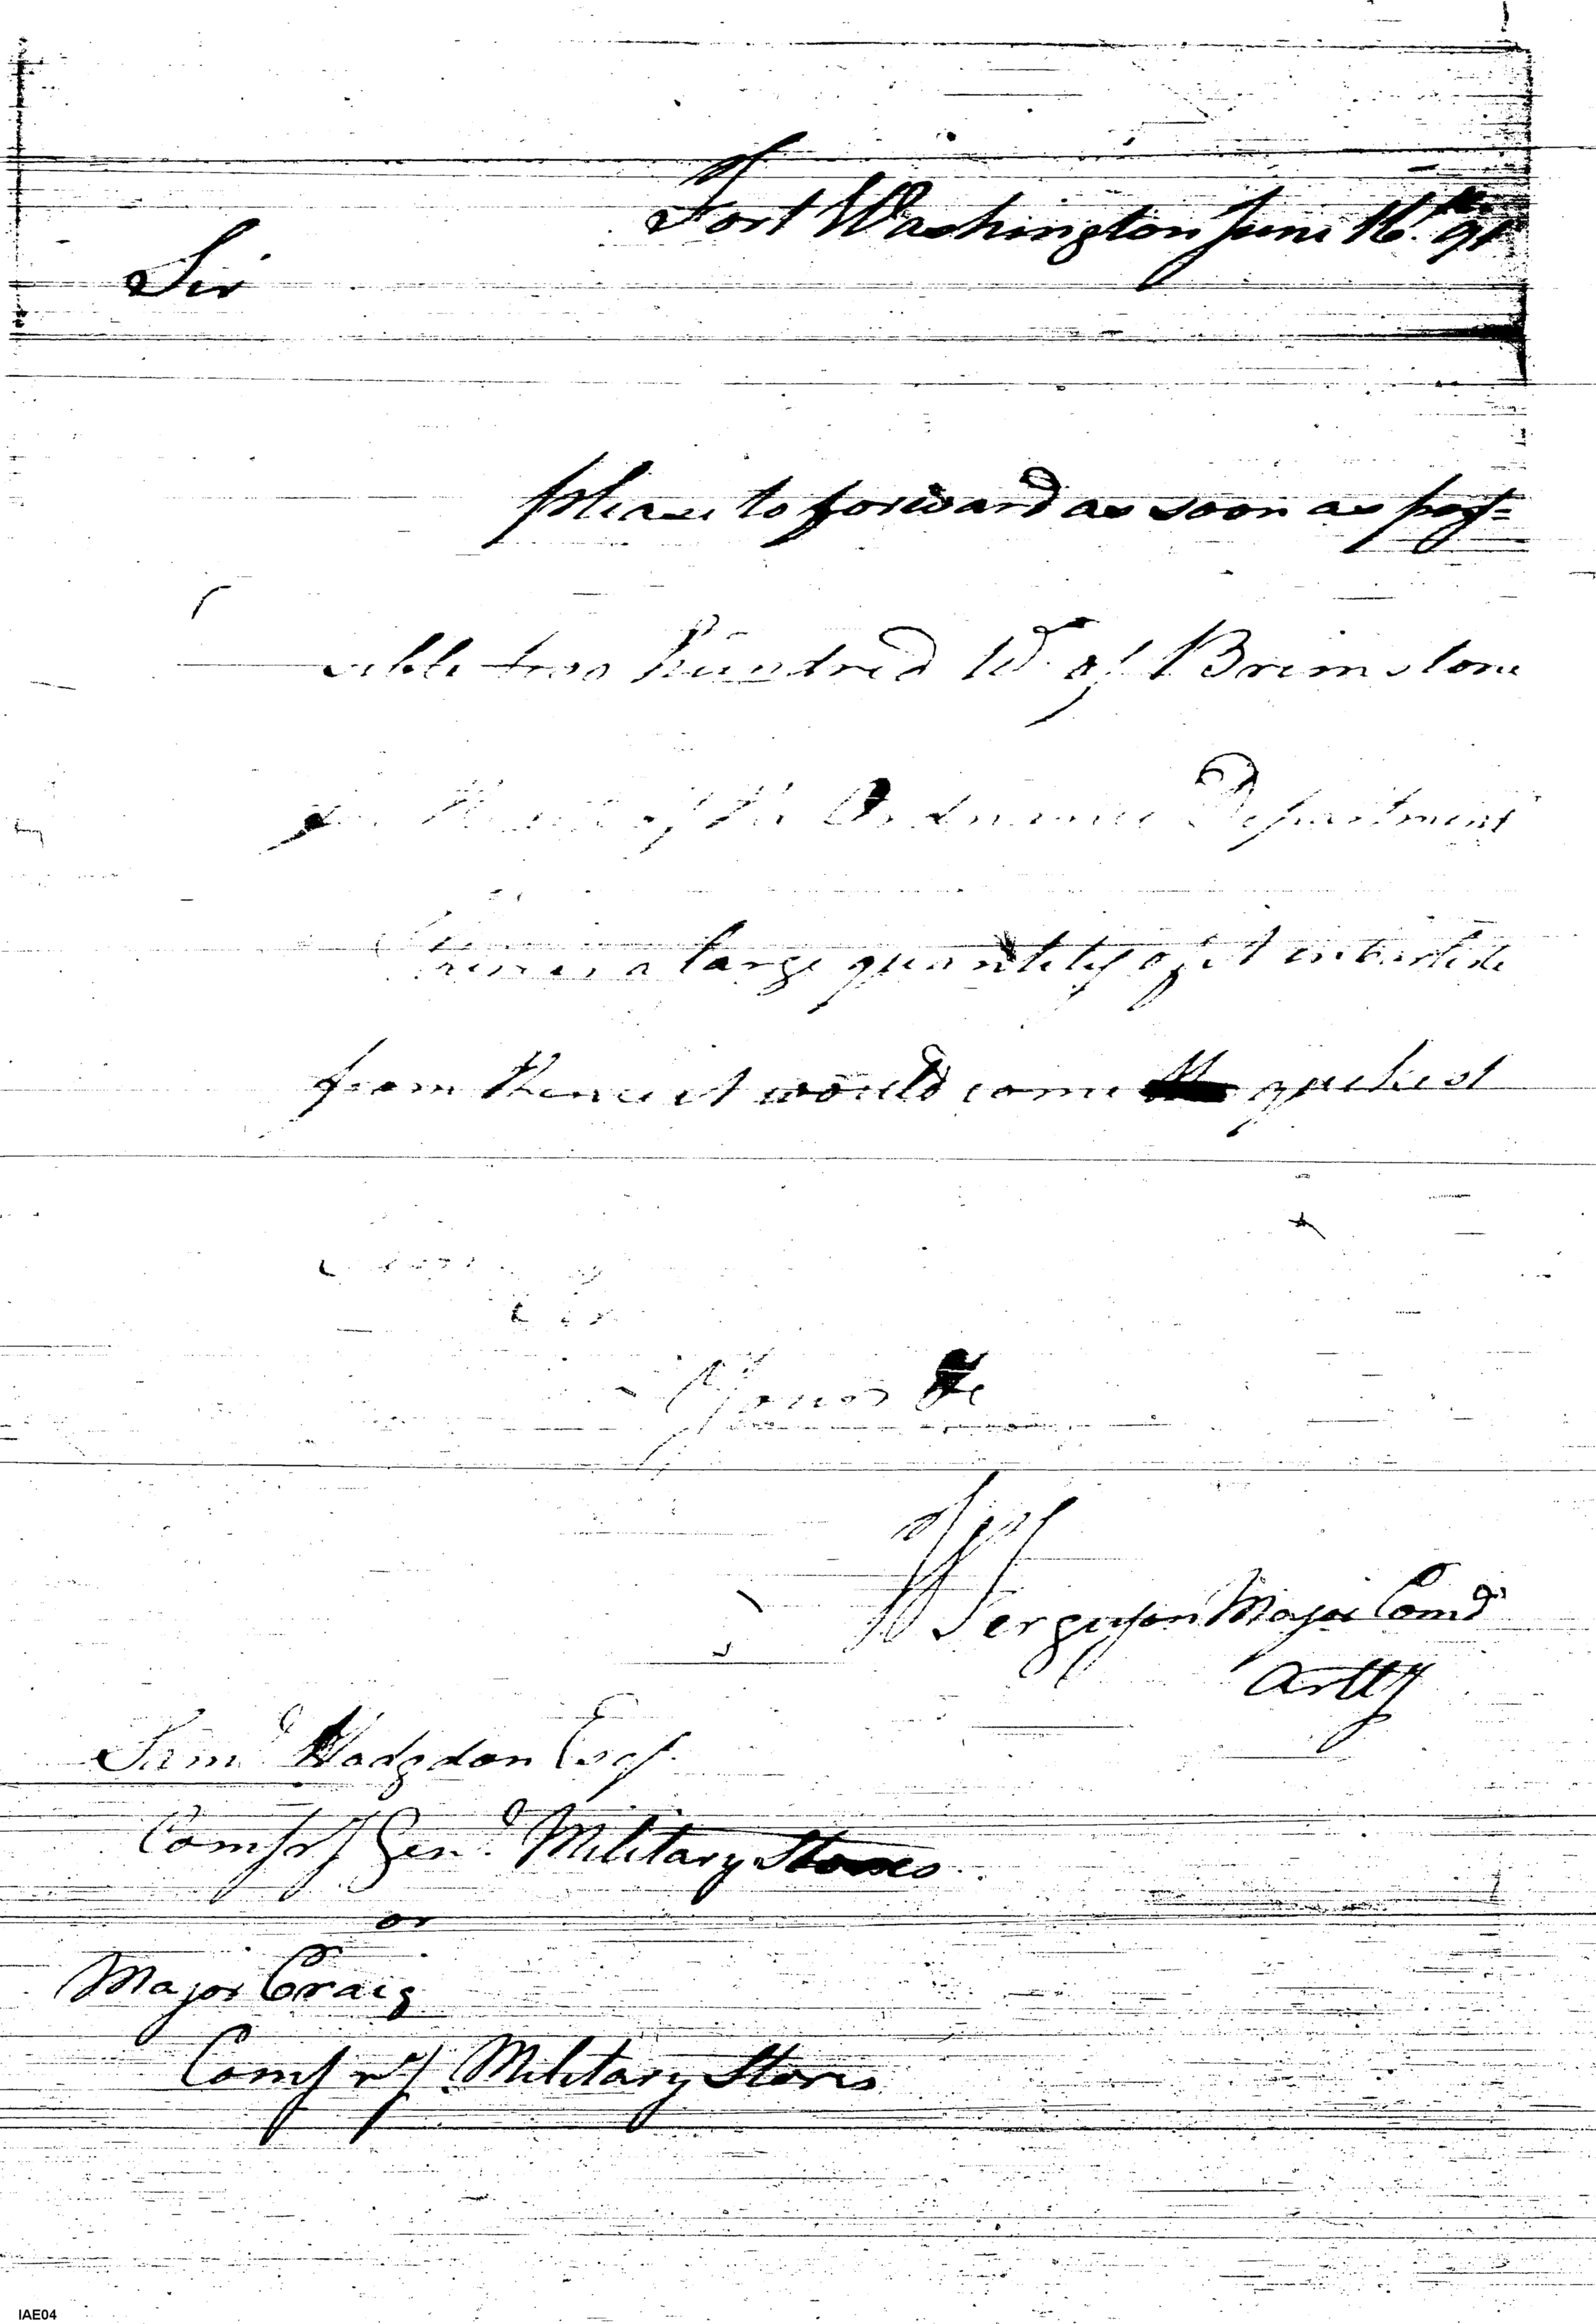 Fort Washington June 16th 91
Sir
please to forward as soon as pos=
sible two hundred Wt. of Brimstone
for the use of the Ordnance Department
There is a large quantity of it in Carlisle
from thence it would come quickest
Yours &c
W Ferguson Major Comd
Artty
Saml Hodgdon Esq
Comsry Genl Military Stores
or
Major Craig
Comsry Military Stores
IAE04